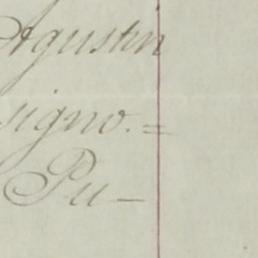 Agustin
signo.=
Pu-